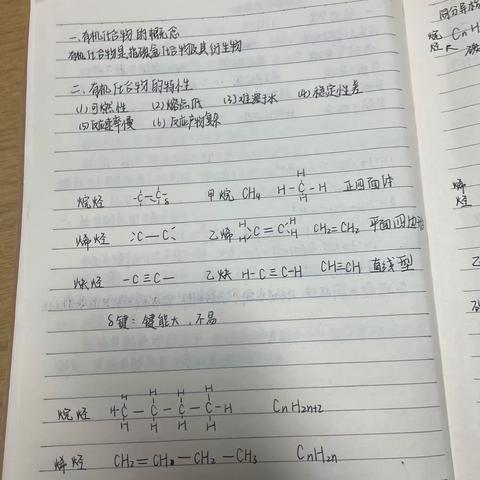 一、有机化合物的概念
有机化合物是指碳氢化合物及其衍生物
二、有机化合物的特性
(1)可燃性 (2)熔点低 (3)难溶于水 (4)稳定性差
(5)反应速率慢 (6)反应产物复杂
烷烃 甲烷 CH4 正四面体
烯烃 乙烯 CH2=CH2 平面四边形
炔烃 -C≡C- 乙炔 H-C≡C-H CH≡CH 直线型
δ键：键能大，不易
烷烃 H-C-C-C-C-H CnH2n+2
烯烃 CH2=CH2-CH2-CH3 CnH2n
同分异构
烷烃 CnH
烯烃